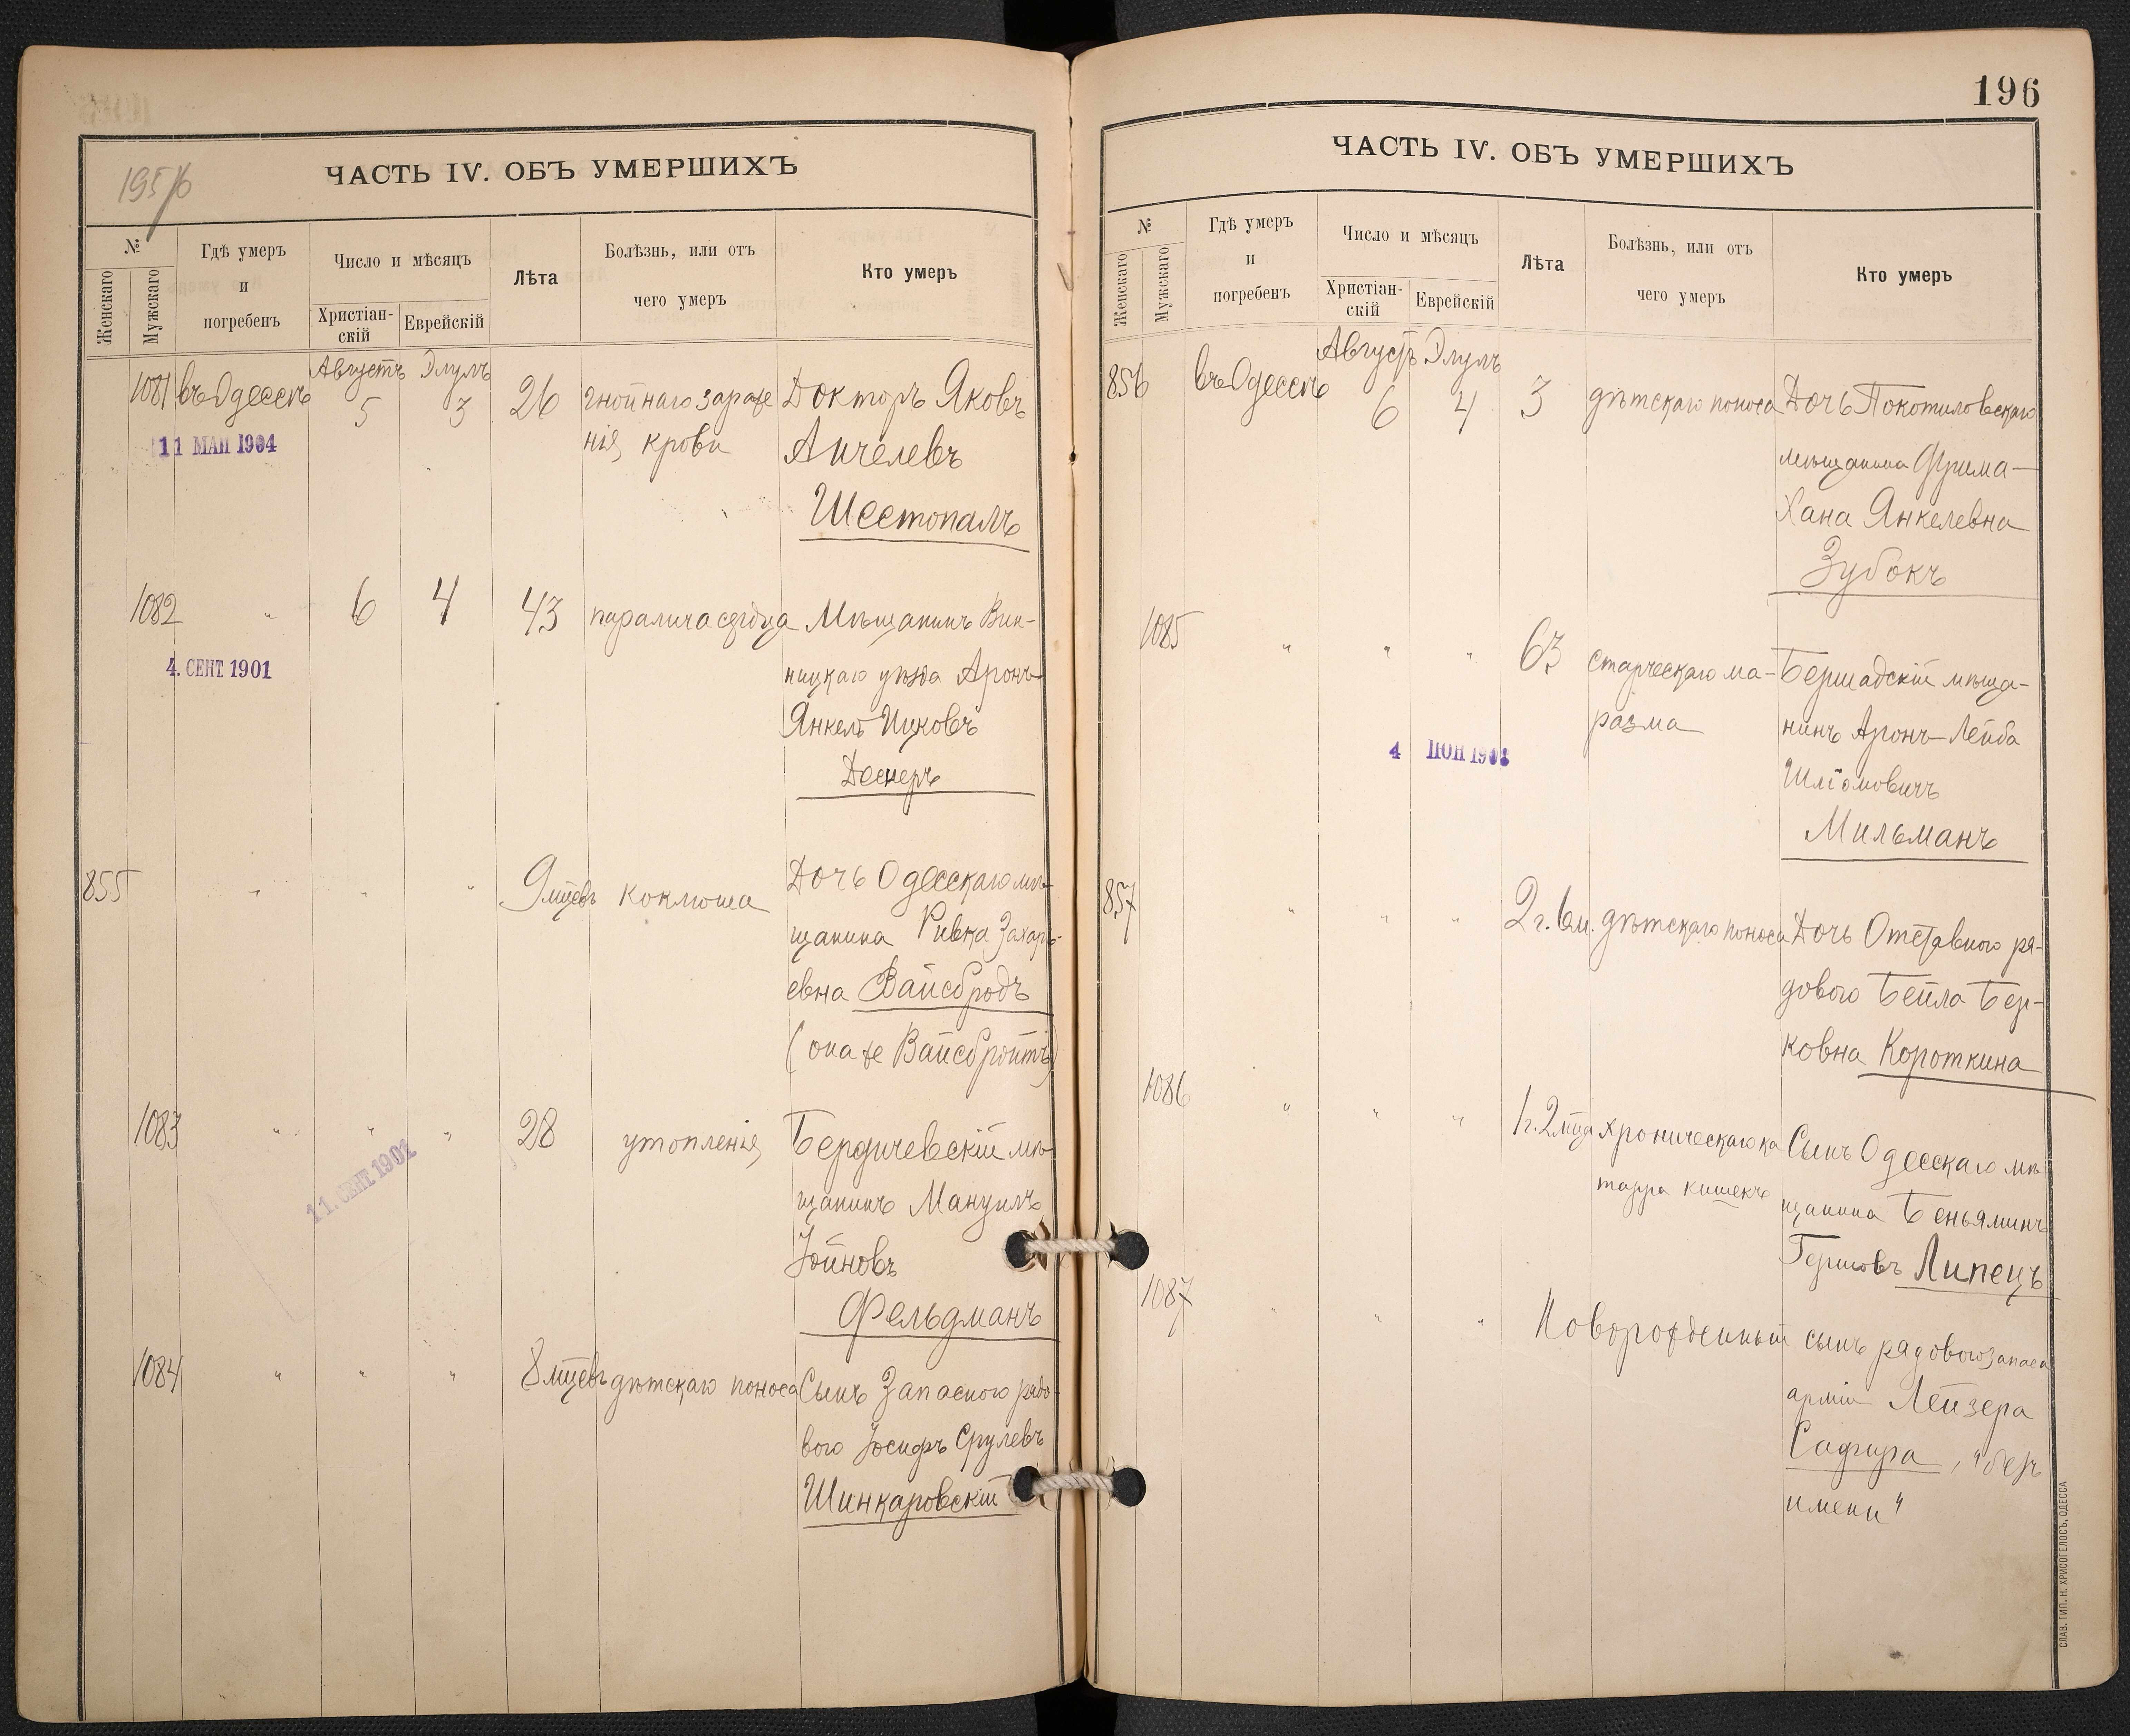 195/6
ЧАСТЬ IV. ОБЪ УМЕРШИХЪ
№
Женскаго
Мужскаго
Гдѣ умеръ
и
погребенъ
Число и мѣсяцъ
Христіан-
скій
Еврейскій
Лѣта
Болѣзнь, или отъ
чего умеръ
Кто умеръ
1081 въ Одессѣ Августъ 5 Элулъ 3 26 гнойнаго зараже Докторъ Яковъ
нія крови Анчелевъ
11 МАЙ 1904
Шестопалъ
1082 " 6 4 43 паралича сердца Мѣщанинъ Вин-
4. СЕНТ 1901
ницкаго уѣзда Аронъ-
Янкель Ицковъ
Деснеръ
855 " " " 9 мцевъ коклюша Дочь Одесскаго мѣ-
щанина Ривка Захарь-
евна Вайсбродъ
(она же Вайсбройтъ)
1083 " " " 28 утопленія Бердичевскій мѣ-
11. СЕНТ 1901
щанинъ Мануилъ
Іойновъ
Фельдманъ
1084 " " " 8 мцевъ дѣтскаго поноса Сынъ Запаснаго рядо-
вого Іосифъ Срулевъ
Шинкаровскій
196
ЧАСТЬ IV. ОБЪ УМЕРШИХЪ
№
Женскаго
Мужскаго
Гдѣ умеръ
и
погребенъ
Число и мѣсяцъ
Христіан-
скій
Еврейскій
Лѣта
Болѣзнь, или отъ
чего умеръ
Кто умеръ
856 въ Одессѣ Августъ 6 Элулъ 4 3 дѣтскаго поноса Дочь Покотиловскаго
мѣщанина Фрима-
Хана Янкелевна
Зубокъ
1085 " " " 63 старческаго ма- Бершадскій мѣща-
разма нинъ Аронъ-Лейба
4 ІЮН 1903
Шліомовичъ
Мильманъ
857 " " " 2 г. 6 м. дѣтскаго поноса Дочь Отставного ря-
дового Бейла Бер-
ковна Короткина
1086 " " " 1 г. 2 мца хроническаго ка Сынъ Одесскаго мѣ
тарра кишекъ щанина Беньяминъ
Гершовъ Липецъ
1087 " " " Новорожденный сынъ рядового запаса
арміи Лейзера
Сафира, "безъ
имени"
СЛАВ. ТИП. Н. ХРИСОГЕЛОСЪ, ОДЕССА